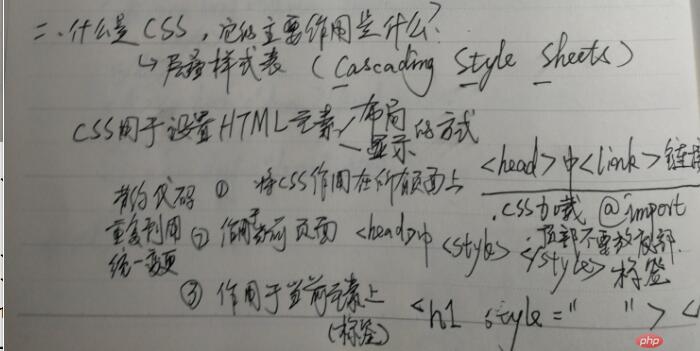 二、什么是CSS，它的主要作用是什么？
↳ 层叠样式表 (Cascading Style Sheets)
CSS用于设置HTML元素 布局
显示 的方式
<head>中<link>链接
节约代码 ① 将CSS作用在所有页面上
.css加载 @import
重复利用 ② 作用于当前页面 <head>中 <style> </style> 标签
顶部不要放底部
统一变更
③ 作用于当前元素上
(标签)
<h1 style=" "> <
php